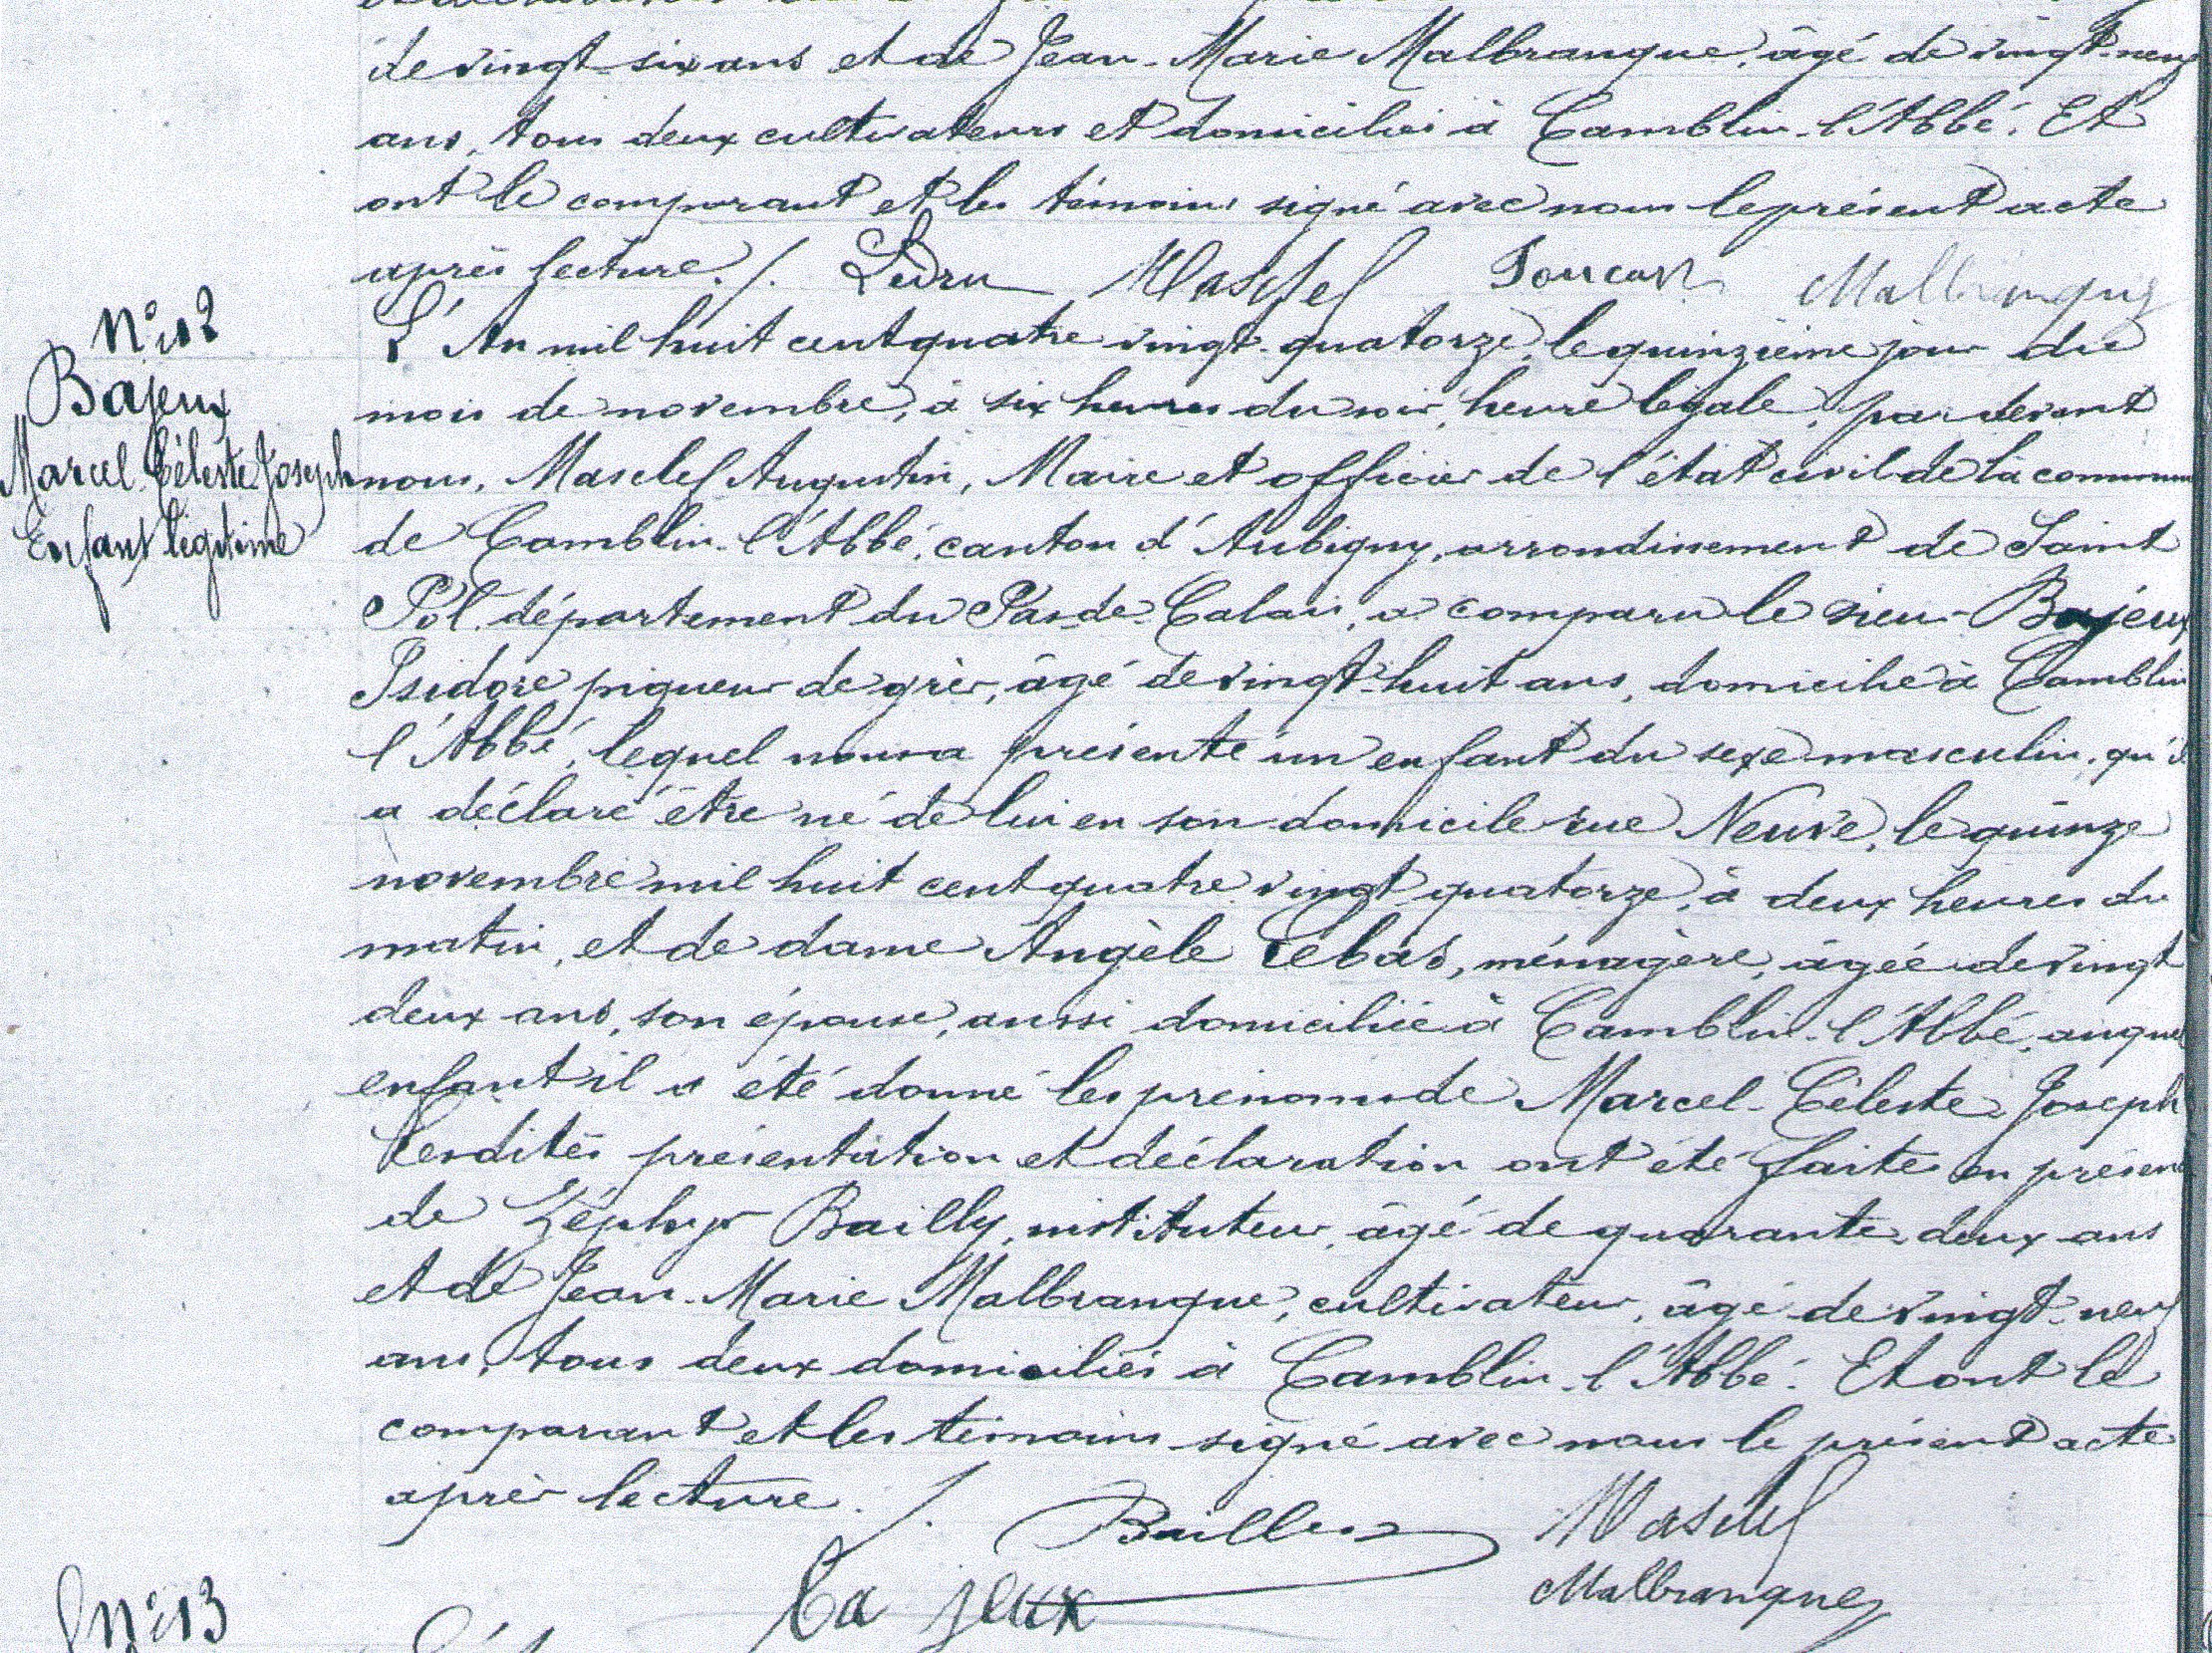 de vingt-six ans et de Jean-Marie Malbranque, âgé de vingt-neuf
ans, tous deux cultivateurs et domiciliés à Camblin-l'Abbé. Et
ont le comparant et les témoins signé avec nous le présent acte
après lecture ./. Ledru Masclef Malbranque
N° 12
Bajeux
Marcel-Céleste Joseph
Enfant légitime
L'An mil huit cent quatre vingt-quatorze, le quinzième jour du
mois de novembre, à six heures du soir, heure légale, par devant
nous, Masclef Augustin, Maire et officier de l'état civil de la commune
de Camblin-l'Abbé, canton d'Aubigny, arrondissement de Saint
Pol, département du Pas-de-Calais, a comparu le sieur Bajeux
Isidore piqueur de grès, âgé de vingt-huit ans, domicilié à Camblin
l'Abbé, lequel nous a présenté un enfant du sexe masculin, qu'il
a déclaré être né de lui en son domicile rue Neuve, le quinze
novembre mil huit cent quatre vingt quatorze, à deux heures du
matin, et de dame Angèle Lebas, ménagère, âgée de vingt
deux ans, son épouse, aussi domiciliée à Camblin-l'Abbé, auquel
enfant il a été donné les prénoms de Marcel-Céleste-Joseph
Lesdites présentation et déclaration ont été faites en présence
de Zéphyr Bailly, instituteur, âgé de quarante-deux ans
et de Jean-Marie Malbranque, cultivateur, âgé de vingt-neuf
ans, tous deux domiciliés à Camblin-l'Abbé. Et ont le
comparant et les témoins signé avec nous le présent acte
après lecture ./. Bailly Masclef
Bajeux Malbranque
N° 13